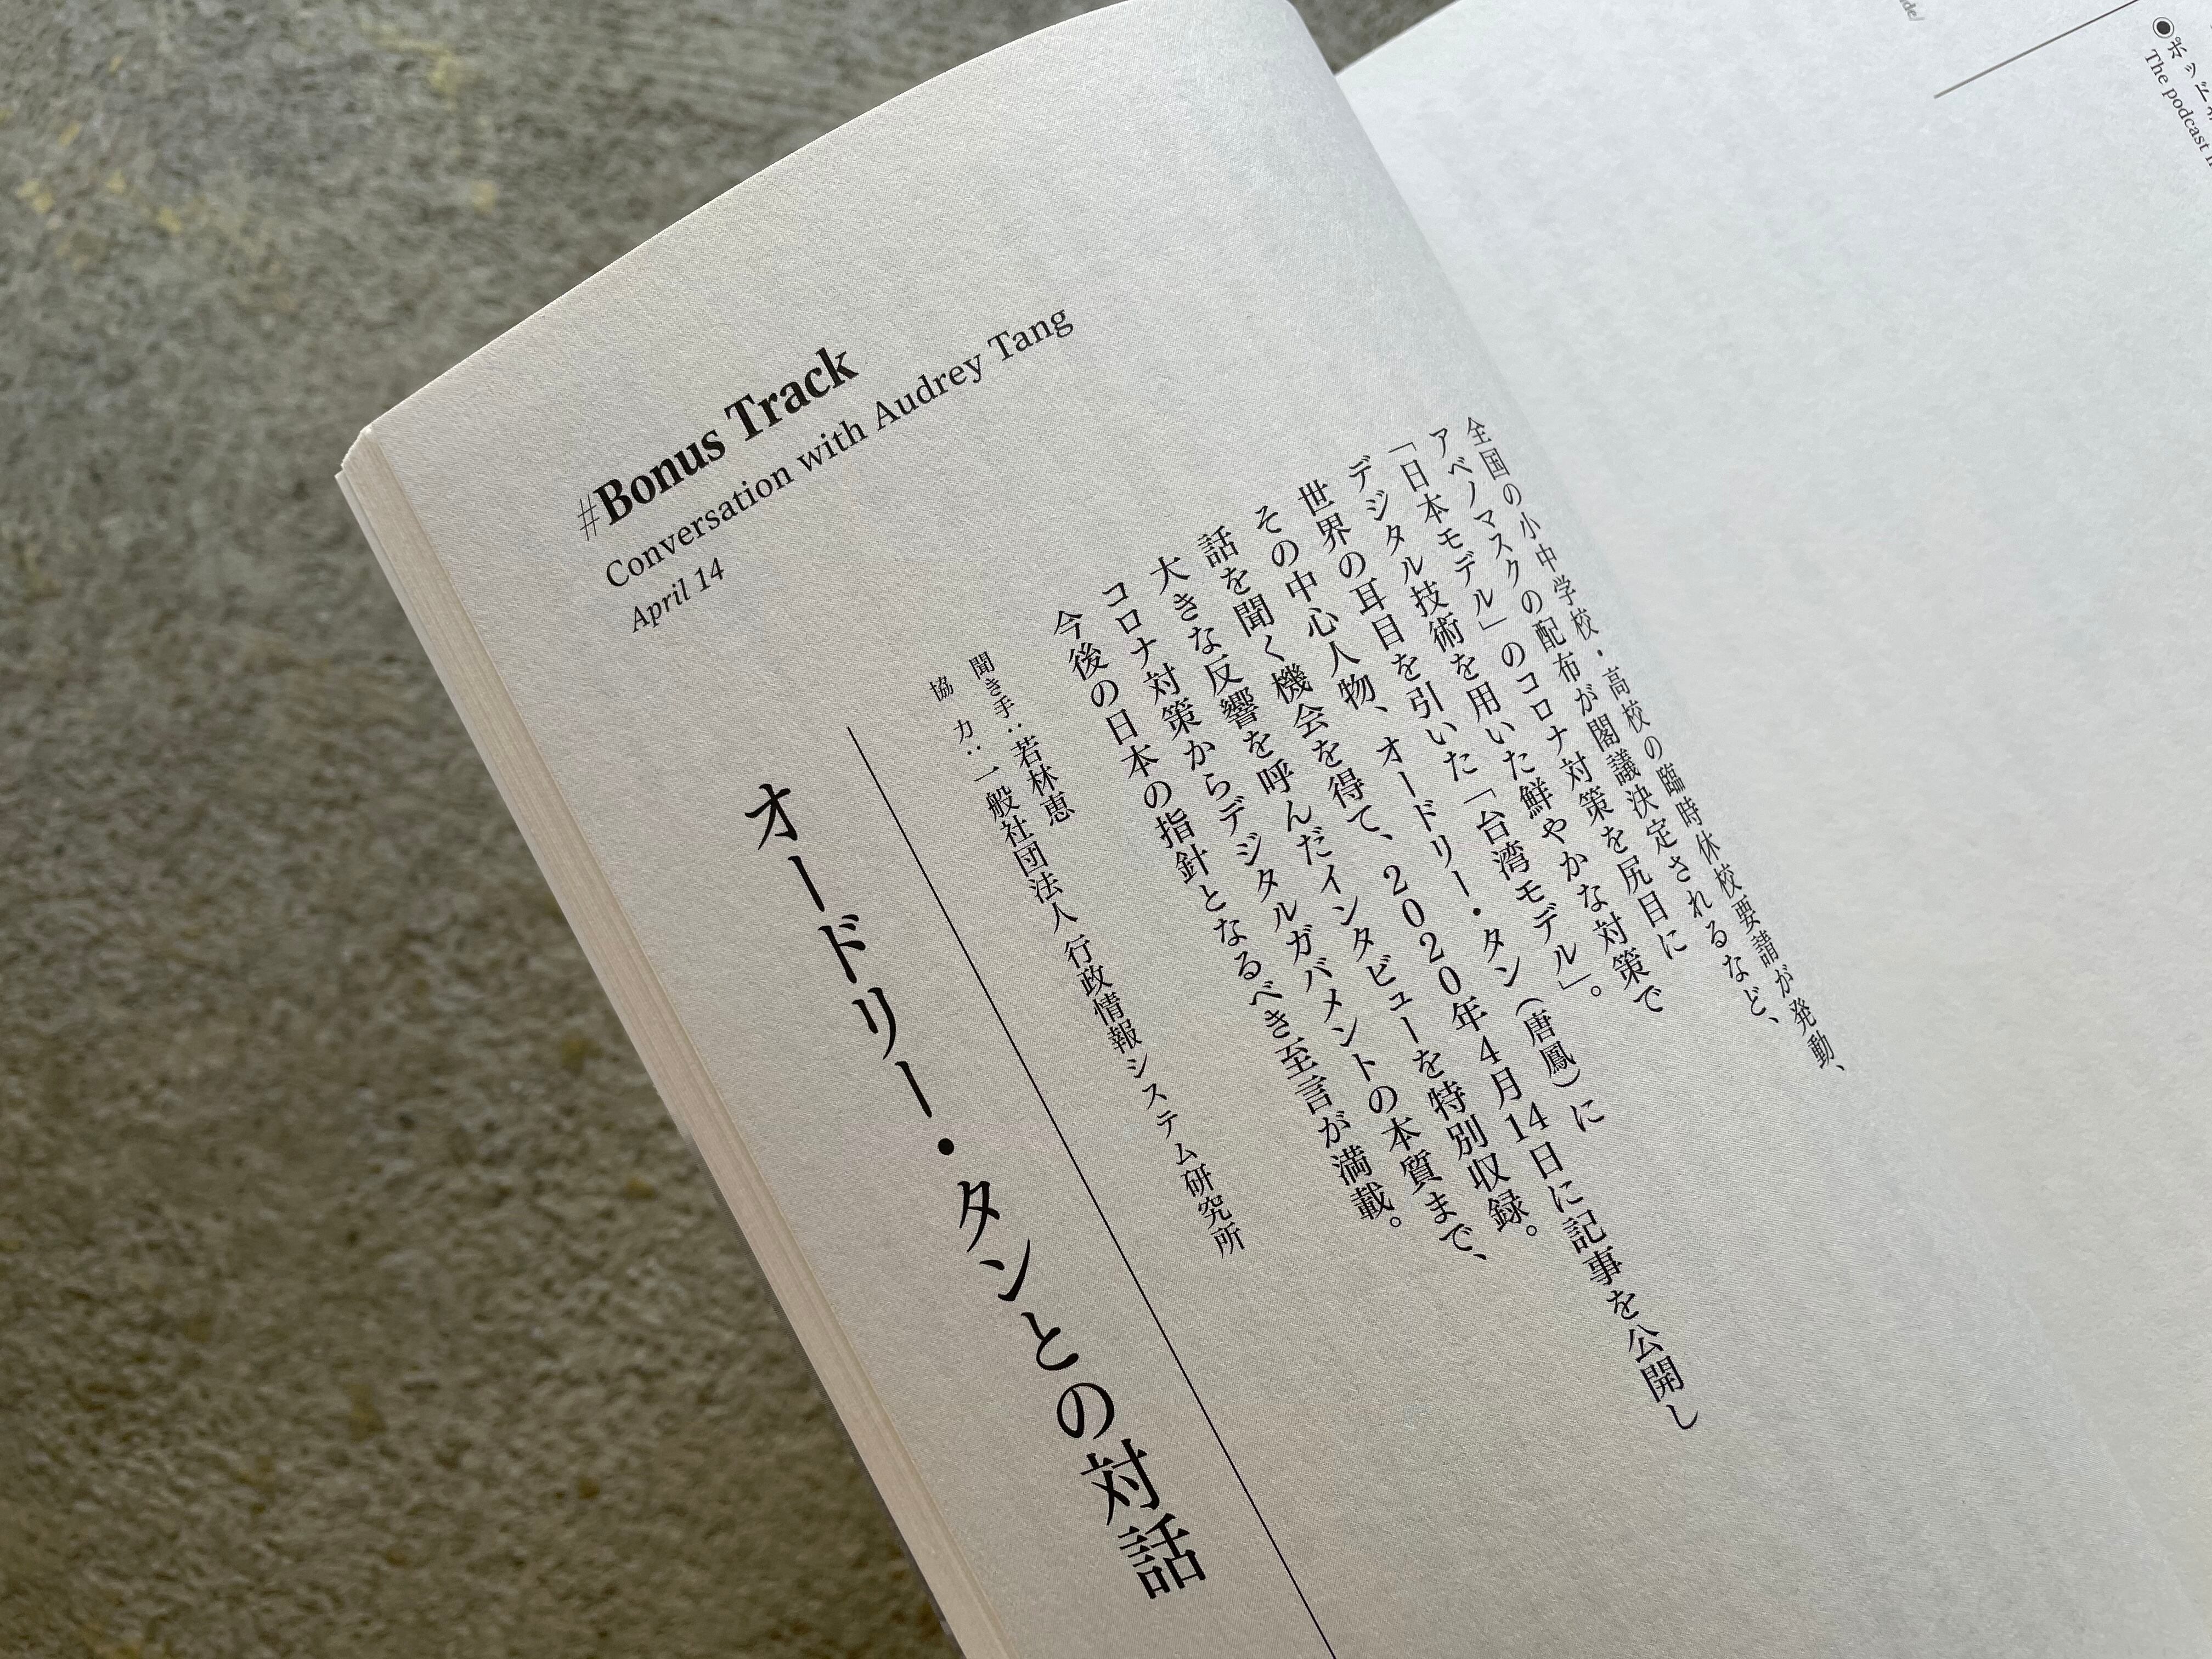 #Bonus Track
Conversation with Audrey Tang
April 14
全国の小中学校・高校の臨時休校要請が発動、
アベノマスクの配布が閣議決定されるなど、
「日本モデル」のコロナ対策を尻目に
デジタル技術を用いた鮮やかな対策で
世界の耳目を引いた「台湾モデル」。
その中心人物、オードリー・タン（唐鳳）に
話を聞く機会を得て、2020年4月14日に記事を公開し
大きな反響を呼んだインタビューを特別収録。
コロナ対策からデジタルガバメントの本質まで、
今後の日本の指針となるべき至言が満載。
聞き手：若林恵
協力：一般社団法人 行政情報システム研究所
オードリー・タンとの対話
The podcast